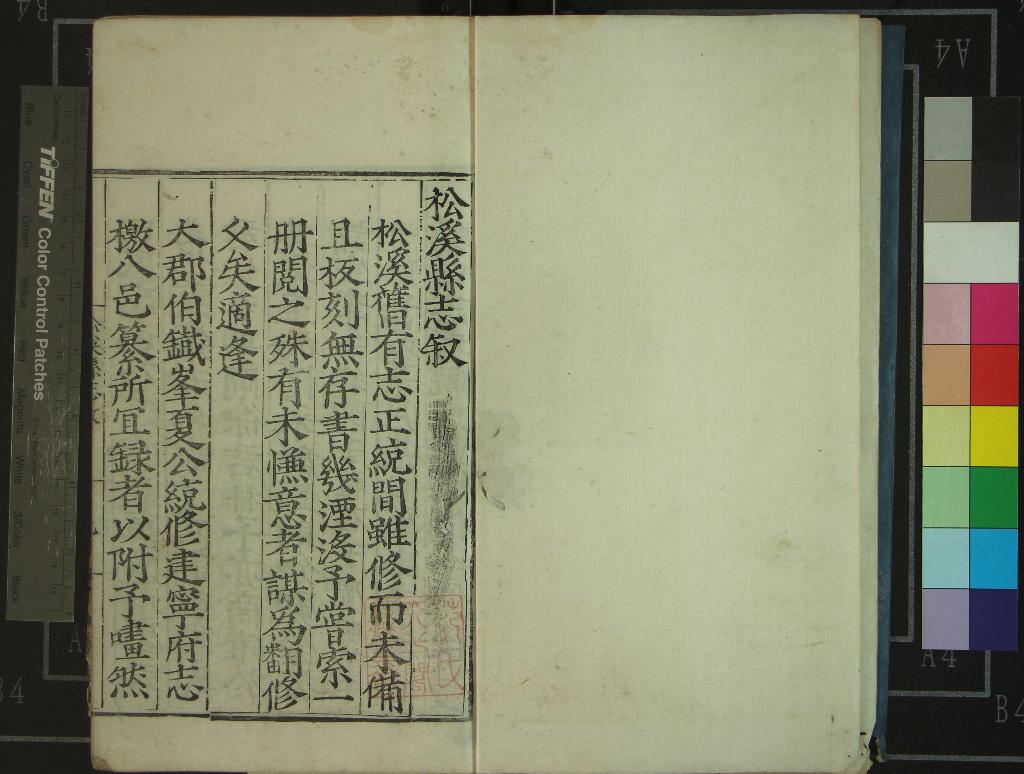 松溪縣志叙
松溪舊有志正統間雖修而未備
且板刻無存書幾湮没予嘗索一
册閱之殊有未愜意者謀為翻修
乆矣適逢
大郡伯鐵峯夏公統修建寧府志
檄八邑纂所冝録者以附予畫然
TIFFEN Color Control Patches
Blue Cyan Green Yellow Red Magenta White 3/Color Black
A4
A4
B4
B4